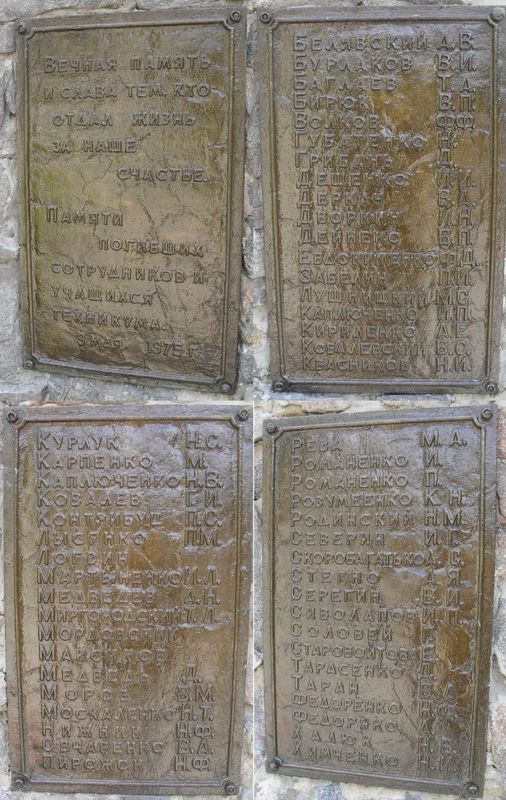 Вечная память
и слава тем, кто
отдал жизнь
за наше
счастье.
Памяти
погибших
сотрудников и
учащихся
техникума.
9 мая 1975 г.
Белявский А.В.
Бурлаков В.И.
Баглаев Т.А.
Бирюк В.П.
Волков Ф.Ф.
Губатенко Н.
Грибань Д.
Дешенко И.И.
Деркач В.А.
Дворкин И.Н.
Дейнеко В.П.
Евдокименко Я.Д.
Забелин П.И.
Лушницкий М.С.
Каплюченко И.П.
Кириленко А.Е.
Ковалевский В.С.
Квасников Н.И.
Курлук Н.С.
Карпенко М.
Каплюченко Н.В.
Ковалев Г.И.
Контрибуц П.С.
Лысенко П.М.
Логвин
Мартыненко И.Л.
Медведев А.Н.
Миргородский Т.Л.
Мордовский
Максимов
Медведь Д.
Мороз В.М.
Москаленко Н.Т.
Нижник Н.Ф.
Овчаренко В.А.
Пирожок Н.Ф.
Рева М.А.
Романенко И.
Романенко П.
Розумеенко К.Н.
Родинский Н.М.
Северин И.Г.
Скоробагатько А.С.
Стегно А.Я.
Серегин В.И.
Сиволапов И.П.
Соловей Г.
Старовойтова Е.
Тарасенко П.
Таран
Федоренко Н.Ф.
Федоряко
Халюк Н.В.
Химченко Н.И.